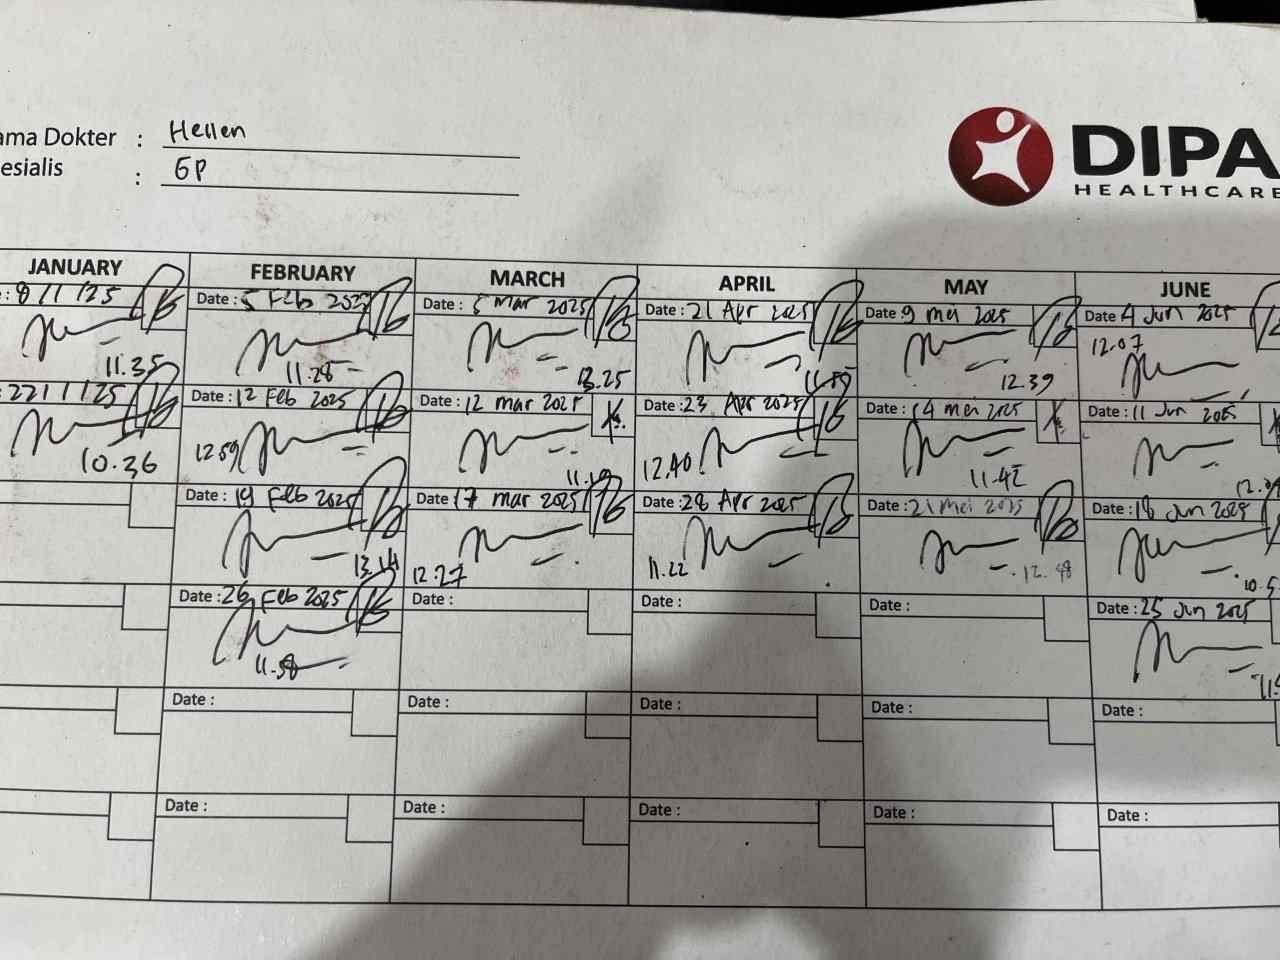 ama Dokter : Hellen
esialis : GP
DIPA
HEALTHCARE
JANUARY FEBRUARY MARCH APRIL MAY JUNE
: 8/1/25 Date : 5 Feb 2025 Date : 5 Mar 2025 Date : 21 Apr 2025 Date : 9 mei 2025 Date : 4 Jun 2025
11.35 11.28 13.25 12.39 12.07
: 22/1/25 Date : 12 Feb 2025 Date : 12 mar 2025 Date : 23 Apr 2025 Date : 14 mei 2025 Date : 11 Jun 2025
10.36 12.59 12.40 11.42
Date : 19 Feb 2025 Date : 17 mar 2025 Date : 28 Apr 2025 Date : 21 Mei 2025 Date : 18 Jun 2025
13.14 12.27 11.22 12.48
Date : 26 Feb 2025 Date : Date : Date : Date : 25 Jun 2025
11.58
Date : Date : Date : Date : Date :
Date : Date : Date : Date : Date :